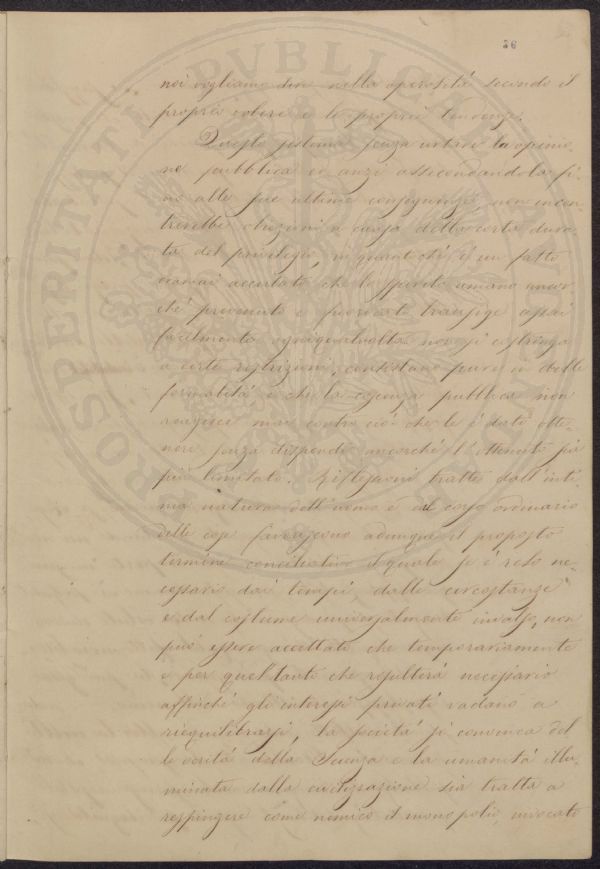 36
noi vogliamo dire nella operosità secondo il
proprio volere e le proprie tendenze.
Questo sistema senza urtare la opinio-
ne pubblica ed anzi assecondandola fi-
no alle sue ultime conseguenze, non incon-
trerebbe obiezioni a causa della corta dura-
ta del privilegio, in quantochè è un fatto
oramai accertato che lo spirito umano ancor
chè prevenuto e transige assai
facilmente ogniqualvolta non si costringa
a certe restrizioni, consistano pure in delle
formalità e che la coscienza pubblica non
reagisce mai contro ciò che le è dato otte-
nere senza dispendio ancorchè l'ottenuto sia
più limitato. Riflessioni tratte dall'inti-
ma natura dell'uomo e dal corso ordinario
delle cose favoriscono adunque il proposto
termine conciliativo il quale se è reso ne-
cessario dai tempi, dalle circostanze
e dal costume universalmente invalso, non
può essere accettato che temporariamente
e per quel tanto che resulterà necessario
affinchè gli interessi privati vadano a
riequilibrarsi, la società si convinca del
le verità della Scienza e la umanità illu-
minata dalla civilizzazione sia tratta a
respingere come nemico il monopolio, invocato
PROSPERITATI PVBLICAE AVGENDAE